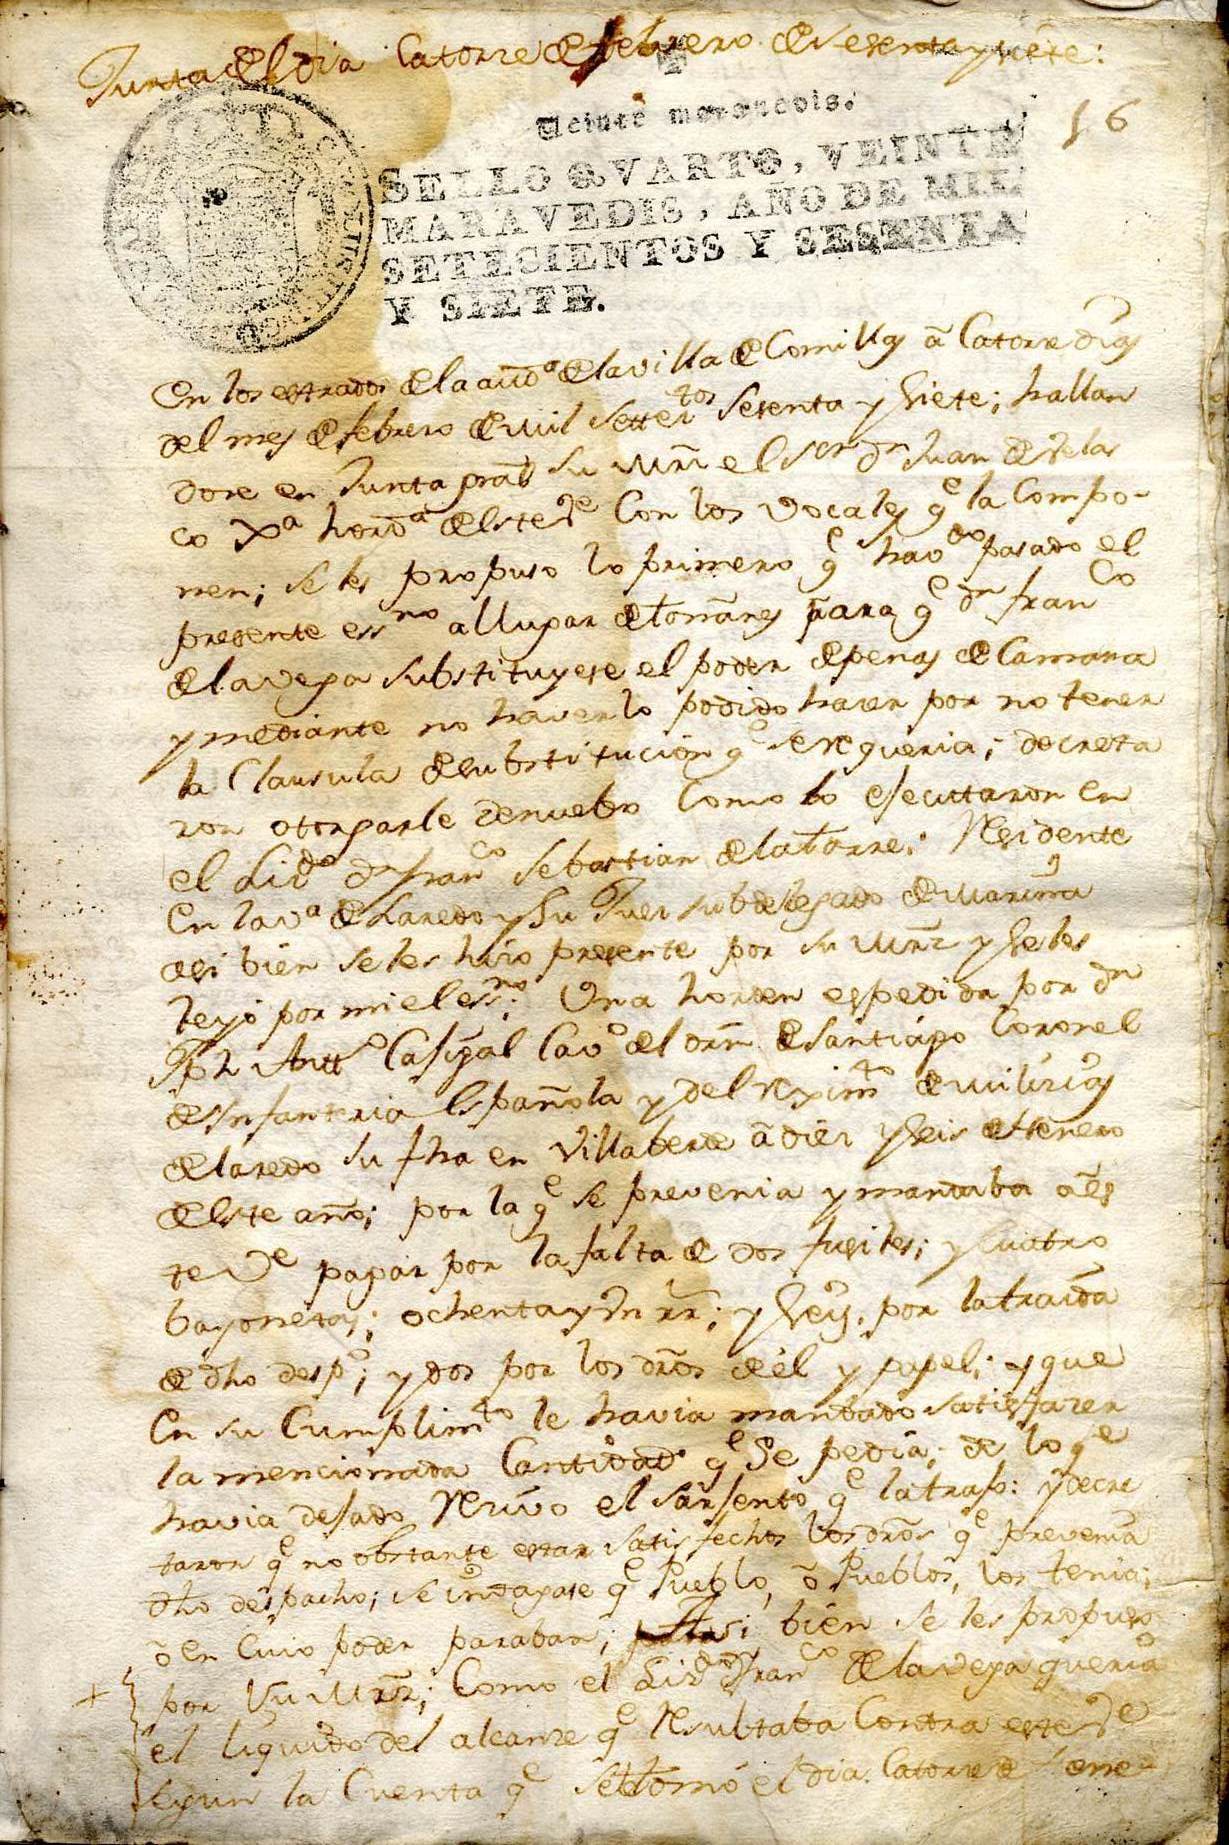 Junta del dia Catorze de febrero de sesenta y siete:
16
Veinte maravedis.
SELLO QVARTO, VEINTE
MARAVEDIS, AÑO DE MIL
SETECIENTOS Y SESENTA
Y SIETE.
En los estrados de la aud.ª de la villa de Comillas â Catorze dias
del mes de febrero de mil settez.tos sesenta y siete; hallan
dose en Junta gral su mrd el Sr dn Juan de Velas
co Xª hordª de este Ve Con los vocales qe la Compo-
nen; se les propuso lo primero qe havdo pasado el
presente essno al lugar de para qe dn franco
de la vega substituyese el poder de penas de Camara
y mediante no haverlo podido hacer por no tener
la Clausula de substitucion qe se requeria; decreta
ron otorgarle denuebo Como lo ejecuttaron en
el Lizdo dn franco Sebastian de la Torre; Residente
En la vª de Laredo y su Juez subdelegado de Marina
asi bien se les hizo presente por su mrd y se les
leyo por mi el essno Una horden espedida por dn
Antto Cavo del orn de Santiago Coronel
de Infanteria Española y del reximto de milizias
de laredo su fha en Villaberde â diez y seis de henero
de este año; por la qe se prevenia y mandaba a es
te Ve pagar por la falta de dos fusiles; y quatro
bayonetas; ochenta y un rr; y seis, por la traida
de dho despo; y dos por los dros de él y papel; y que
En su Cumplimto le havia mandado satisfazer
la mencionada Cantidad qe se pedia; de lo qe
havia dejado Rezivo el sarjento qe la trajo: y decre
taron qe no obstante estar satisfechos los dros qe prevenia
dho despacho; se indagase qe Pueblo, ô Pueblos, los tenia;
ô en cuio poder paraban; Assi bien se les propuso
por su mrd; Como el Lizdo dn Franco de la vega queria
el liquido del alcanze qe Resultaba Contra este Ve
segun la Cuenta qe se le tomó el dia Catorze de hene-